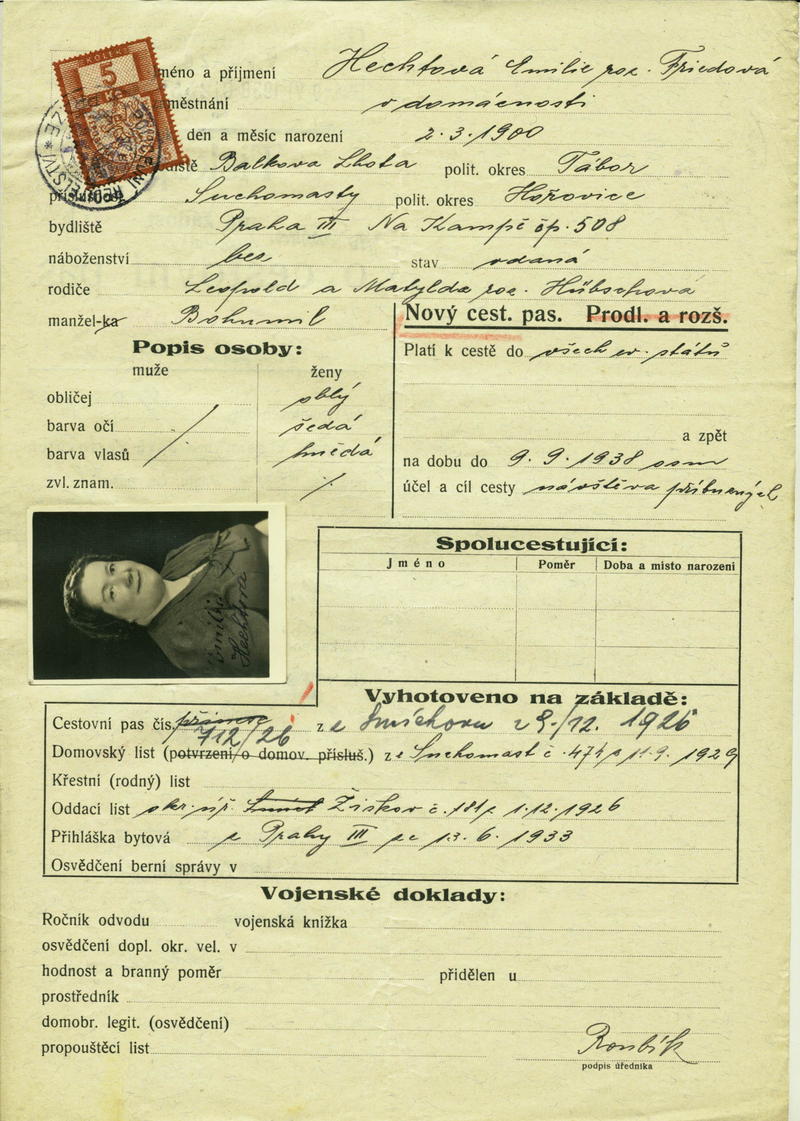 KOLEK
5
Kč
jméno a příjmení Hechtová Emilie roz. Friedová
zaměstnání v domácnosti
den a měsíc narození 2.3.1900
Balkova Lhota polit. okres Tábor
příslušnost Suchomasty polit. okres Hořovice
bydliště Praha III Na Kampě čp. 508
náboženství bez stav vdaná
rodiče Leopold a Matylda roz. Hübschová
manžel-ka Bohumil
Nový cest. pas. Prodl. a rozš.
Popis osoby:
muže ženy
Platí k cestě do všech ev. států
obličej oblý
barva očí šedá
a zpět
barva vlasů hnědá
na dobu do 9.9.1938 osm
zvl. znam.
účel a cíl cesty návštěva příbuzných
Emilie
Hechtová
Spolucestující:
Jméno Poměr Doba a místo narození
Vyhotoveno na základě:
Cestovní pas čís. 712/26 z e Smíchova z 9./12. 1926
Domovský list (potvrzení o domov. přísluš.) z e Suchomast č. 474 11.9. 1929
Křestní (rodný) list
Oddací list okr. úř. Žižkov č. 181 1.12.1926
Přihláška bytová z Prahy III ze 13.6.1933
Osvědčení berní správy v
Vojenské doklady:
Ročník odvodu vojenská knížka
osvědčení dopl. okr. vel. v
hodnost a branný poměr přidělen u
prostředník
domobr. legit. (osvědčení)
propouštěcí list
podpis úředníka